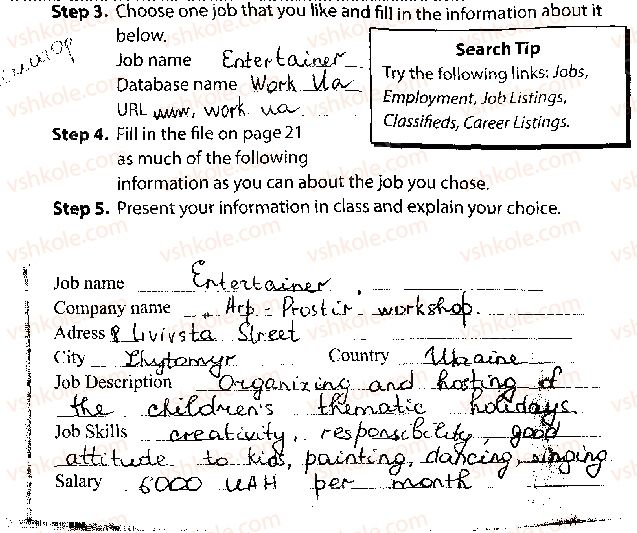 Step 3. Choose one job that you like and fill in the information about it
below.
Job name Entertainer
Database name Work Ua
URL www. work. ua.
Search Tip
Try the following links: Jobs,
Employment, Job Listings,
Classifieds, Career Listings.
Step 4. Fill in the file on page 21
as much of the following
information as you can about the job you chose.
Step 5. Present your information in class and explain your choice.
Job name Entertainer
Company name Arp - Prostir workshop.
Adress 8 Livivsta Street
City Zhytomyr Country Ukraine
Job Description Organizing and hosting of
the children's thematic holidays
Job Skills creativity, responsibility, good
attitude to kids, painting, dancing, singing
Salary 6000 UAH per month
vshkole.com